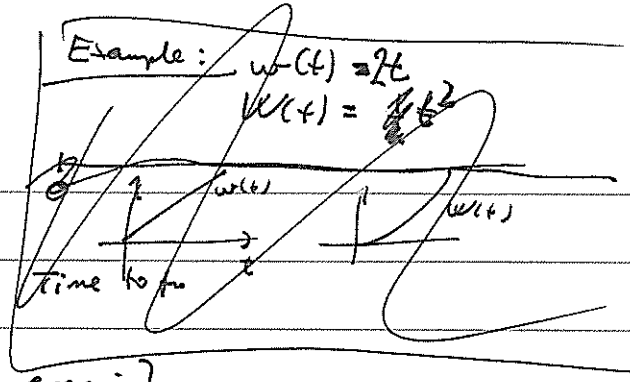 Example: w(t) = 2t
W(t) = t²
w(t)
t
W(t)
Time to